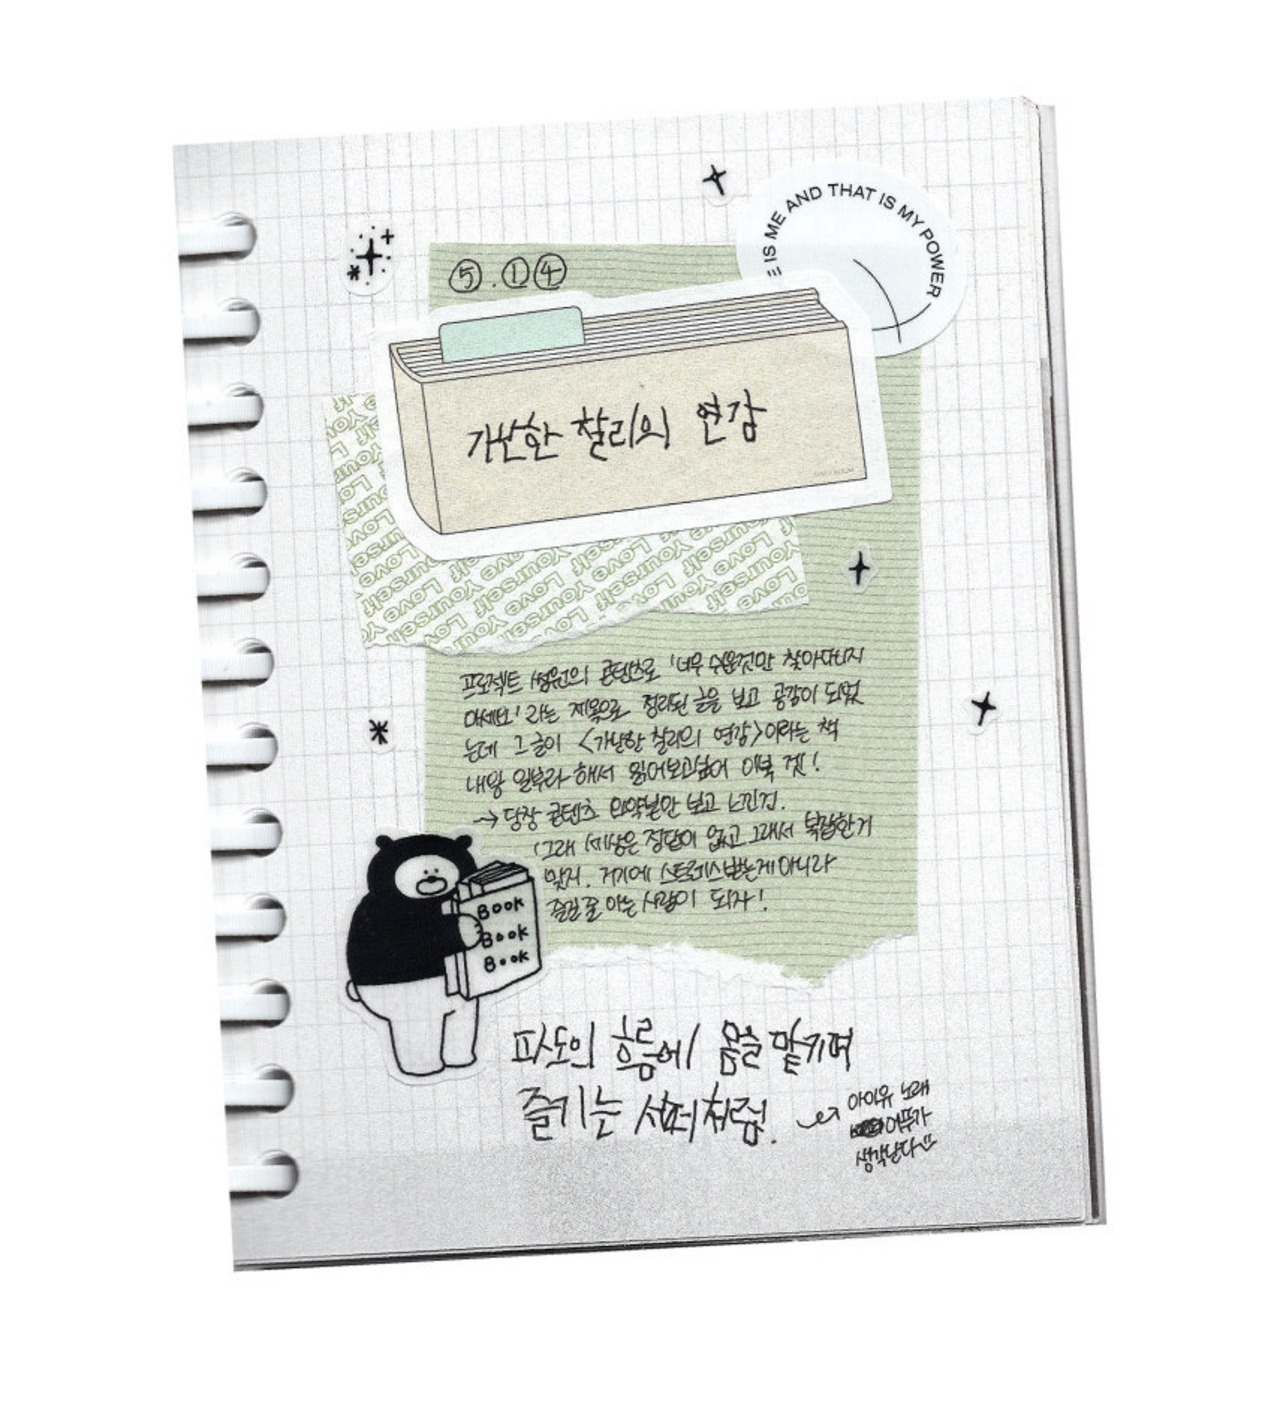 E IS ME AND THAT IS MY POWER
5.14
가난한 찰리의 연감
Love Yourself Love Yourself Love Yourself
프로젝트 썸원의 콘텐츠로 '너무 쉬운것만 찾아다니지
마세요' 라는 제목으로 정리된 글을 보고 공감이 되었
는데 그 글이 <가난한 찰리의 연감>이라는 책
내용 일부라 해서 읽어보고싶어 이북 겟!
→ 당장 콘텐츠 요약본만 보고 느낀점.
'그래 세상은 정답이 없고 그래서 복잡한거
맞지. 거기에 스트레스받는게 아니라
즐길 줄 아는 사람이 되자!
BOOK
BOOK
BOOK
파도의 흐름에 몸을 맡기며
즐기는 서퍼처럼.
아이유 노래
어푸가
생각난다